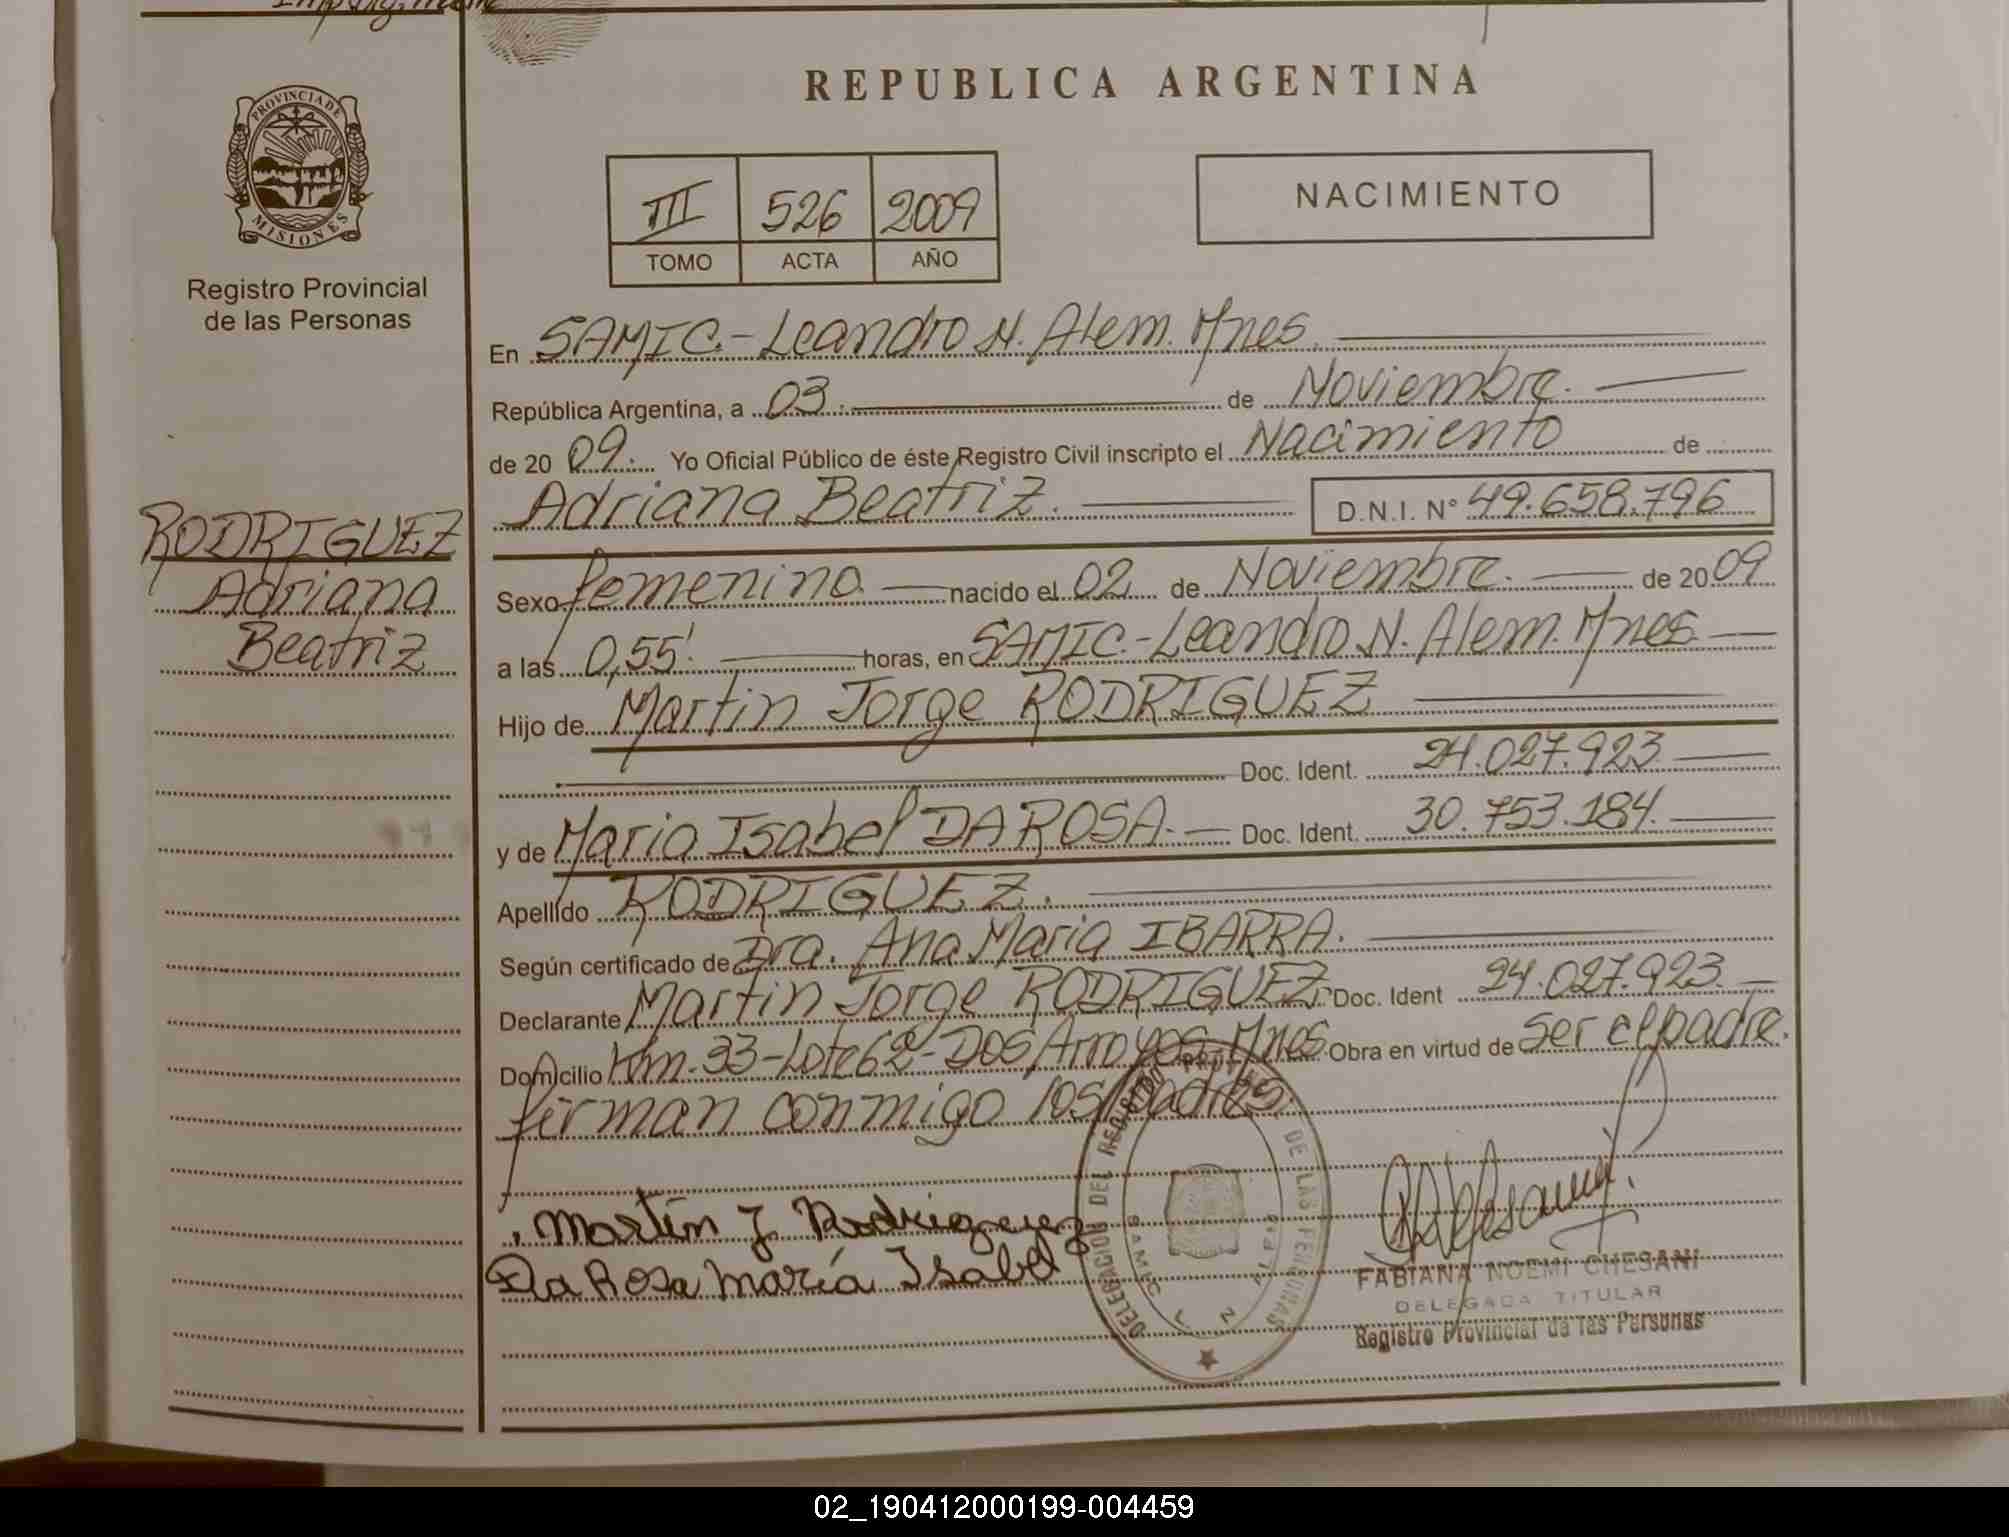 PROVINCIA DE
MISIONES
Registro Provincial
de las Personas
RODRIGUEZ
Adriana
Beatriz
REPUBLICA ARGENTINA
III 526 2009
TOMO ACTA AÑO
NACIMIENTO
En SAMIC.-Leandro N. Alem. Mnes.
República Argentina, a 03. de Noviembre.
de 20 09. Yo Oficial Público de éste Registro Civil inscripto el Nacimiento de
Adriana Beatriz. D.N.I. N° 49.658.796
Sexo femenino nacido el 02 de Noviembre. de 20 09
a las 0,55'. horas, en SAMIC.-Leandro N. Alem. Mnes
Hijo de Martin Jorge RODRIGUEZ
Doc. Ident. 24.027.923
y de Maria Isabel DA ROSA.- Doc. Ident. 30.753.184.
Apellido RODRIGUEZ.
Según certificado de Dra. Ana Maria IBARRA.
Declarante Martin Jorge RODRIGUEZ. Doc. Ident 24.027.923.
Domicilio Km. 33-Lote 62-Dos Arroyos. Mnes. Obra en virtud de ser el padre.
firman conmigo los padres.
Martín J. Rodriguez
Da Rosa María Isabel
DELEGACION DEL REGISTRO PROVINCIAL DE LAS PERSONAS
SAMIC L. N. ALEM
FABIANA NOEMI CHESANI
DELEGADA TITULAR
Registro Provincial de las Personas
02_190412000199-004459